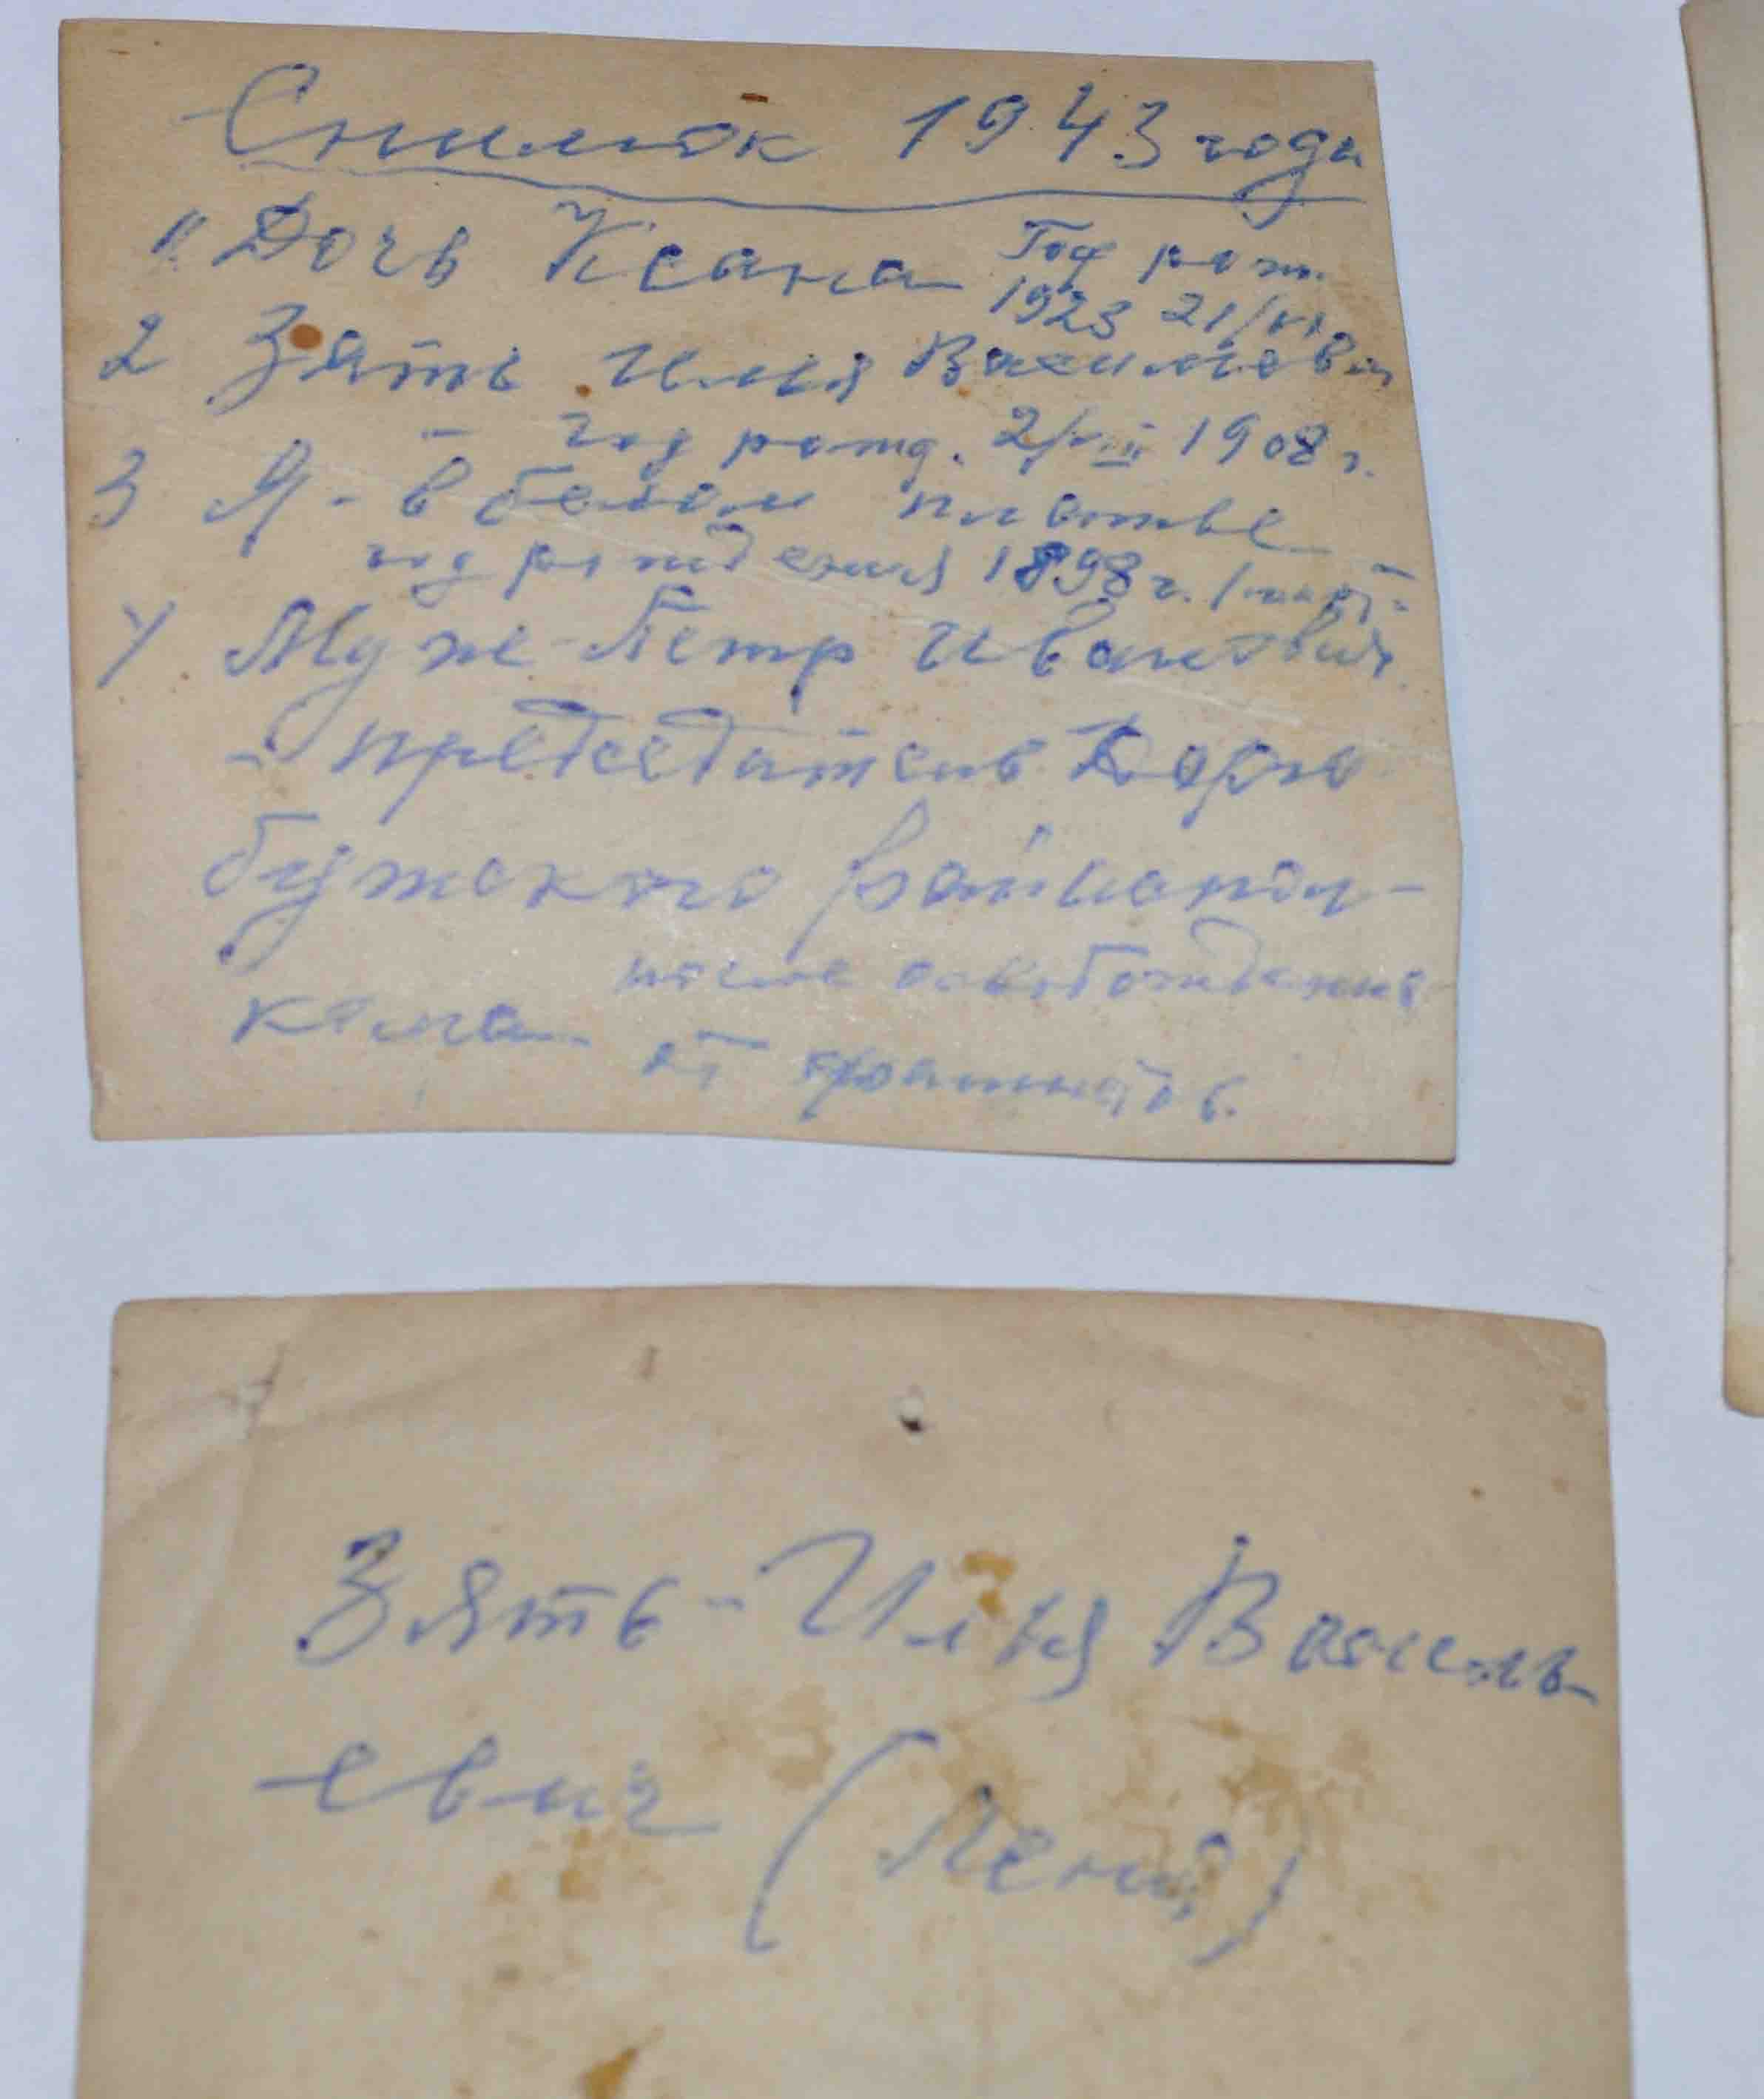 Снимок 1943 года
1. Дочь Ксана Год рож.
1923 21/VI
2 Зять Илья Васильевич
год рожд. 2/VIII 1908 г.
3 Я - в белом платье
год рождения 1898 г.
4 Муж Петр Иванович
- председатель Доро
бужского райиспол-
кома после освобождения
от
Зять - Илья Василь
евич (Леня)